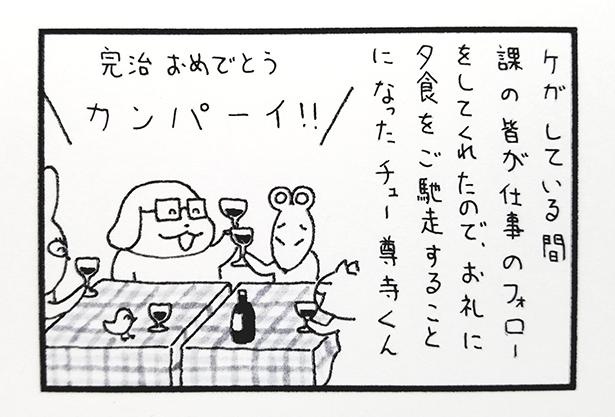 ケガしている間
課の皆が仕事のフォロー
をしてくれたので、お礼に
夕食をご馳走すること
になったチュー尊寺くん
完治おめでとう
カンパーイ!!